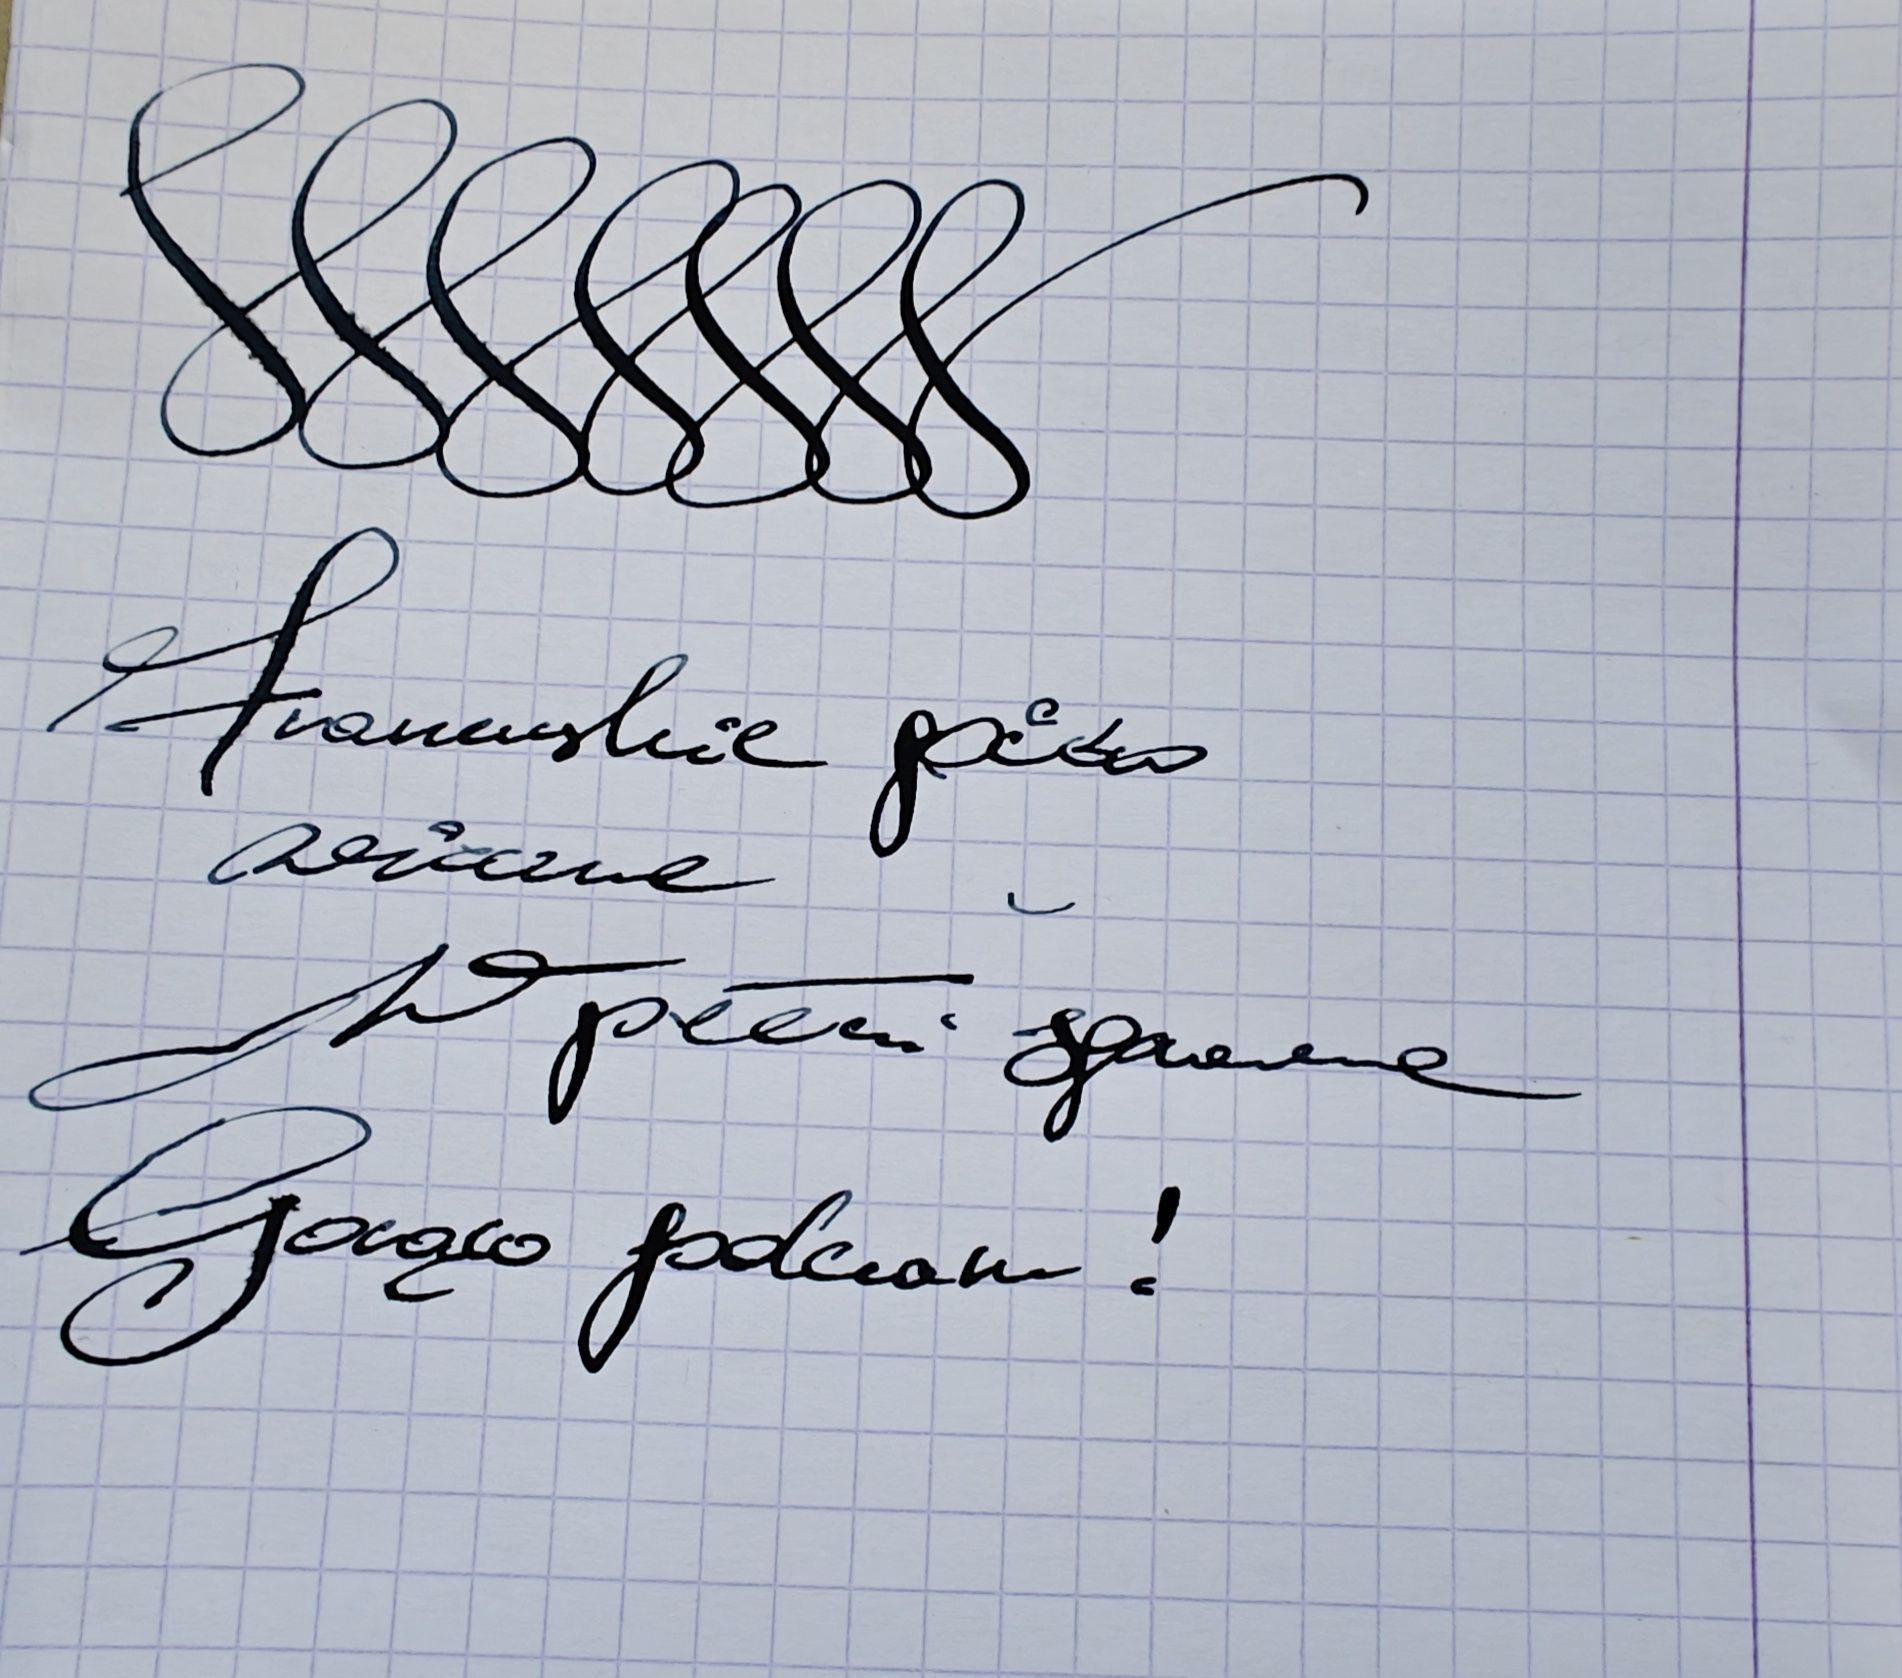 Francuskie piórko
używane
W pełni sprawne
Gorąco polecam!